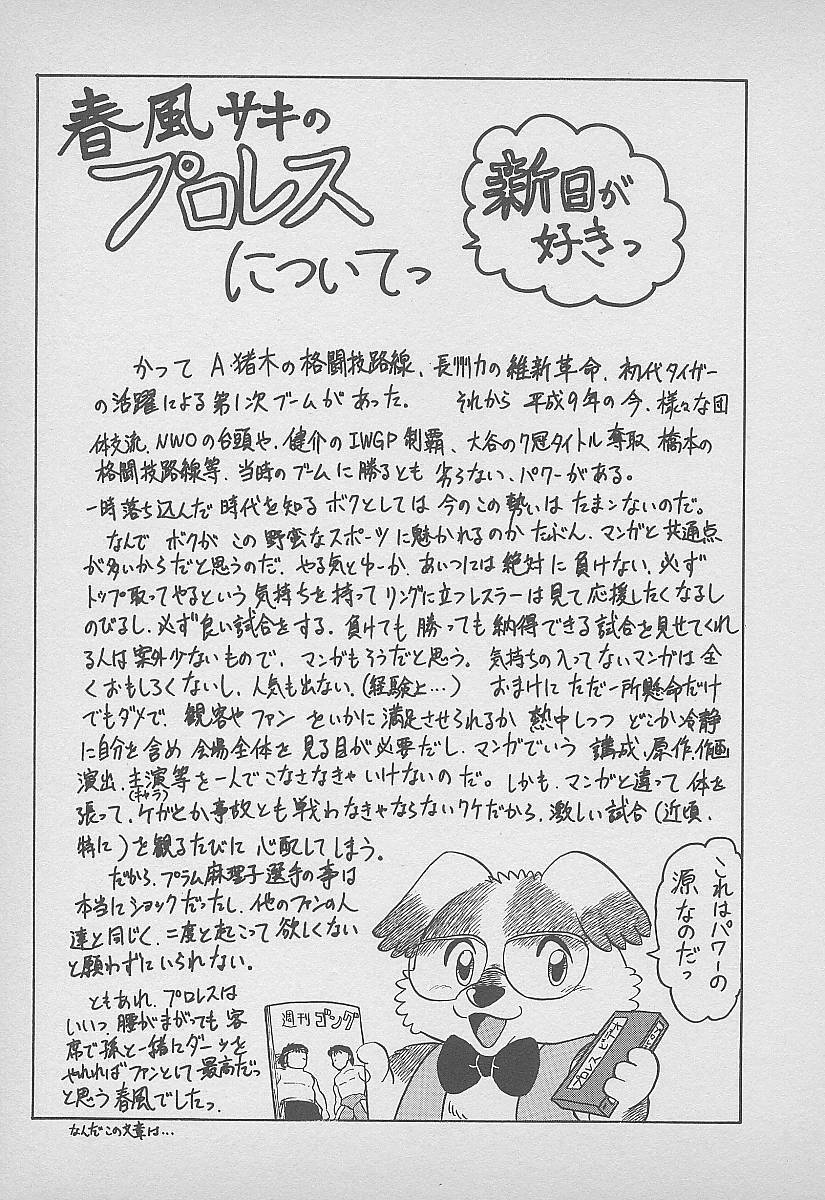 春風サキの
プロレス
についてっ
新日が
好きっ
かって A.猪木の格闘技路線、長州力の維新革命、初代タイガー
の活躍による第1次ブームがあった。 それから 平成9年の今、様々な団
体交流、NWOの台頭や、健介のIWGP制覇、大谷の7冠タイトル奪取 橋本の
格闘技路線等、当時のブームに勝るとも劣らない、パワーがある。
一時落ち込んだ時代を知るボクとしては今のこの勢いはたまンないのだ。
なんで ボクが この野蛮なスポーツに魅かれるのか たぶん、マンガと共通点
が多いからだと思うのだ、やる気とゆーか、あいつには絶対に負けない、必ず
トップ取ってやるという気持ちを持ってリングに立つレスラーは見て応援したくなるし
のびるし、必ず良い試合をする。負けても勝っても納得できる試合を見せてくれ
る人は案外少ないもので、マンガもそうだと思う。気持ちの入ってないマンガは全
くおもしろくないし、人気も出ない、(経験上…) おまけに ただ一所懸命だけ
でもダメで、観客やファンをいかに満足させられるか 熱中しつつ どこか冷静
に自分を含め会場全体を見る目が必要だし、マンガでいう 講成、原作、作画
演出、主演等を一人でこなさなきゃいけないのだ。しかも、マンガと違って体を
(キャラ)
張って、ケガとか事故とも戦わなきゃならないワケだから、激しい試合(近頃、
特に)を観るたびに心配してしまう。
だから、プラム麻理子選手の事は
本当にショックだったし、他のファンの人
達と同じく、二度と起こって欲しくない
と願わずにいられない。
ともあれ、プロレスは
いいっ、腰がまがっても客
席で孫と一緒にダーッを
やれればファンとして最高だっ
と思う春風でしたっ
これはパワーの
源なのだっ
週刊ゴング
プロレスビデオ
なんだこの文章は…